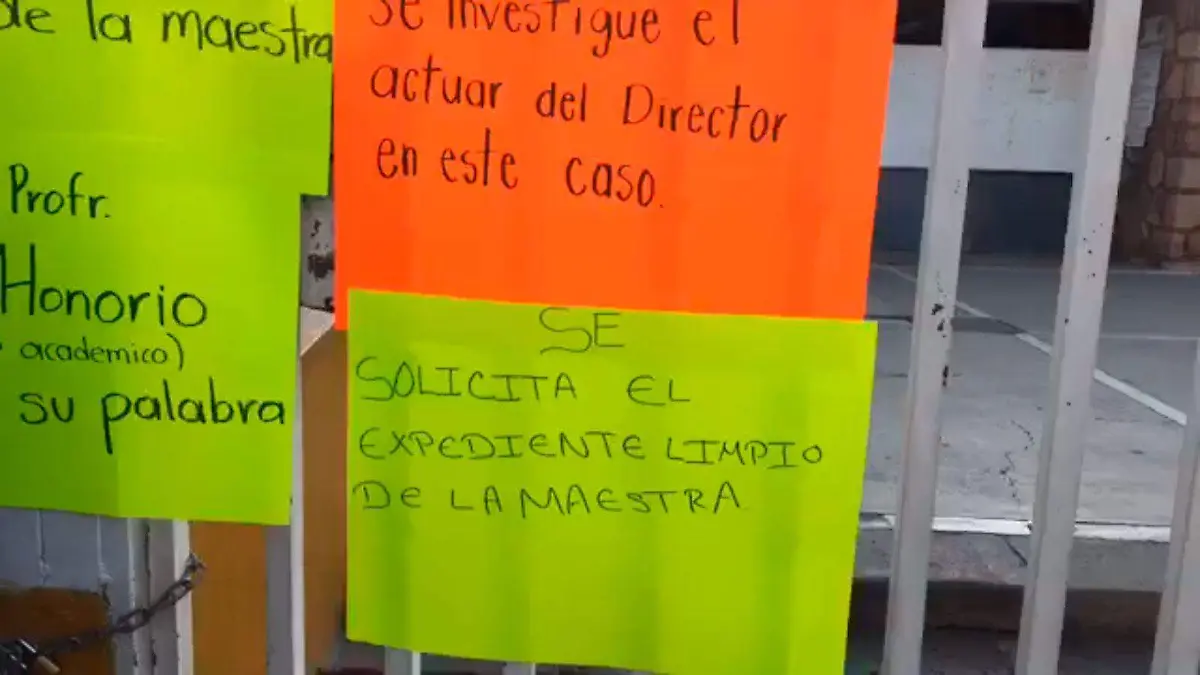 de la maestra
Profr.
Honorio
academico)
su palabra
se investigue el
actuar del Director
en este caso.
SE
SOLICITA EL
EXPEDIENTE LIMPIO
DE LA MAESTRA